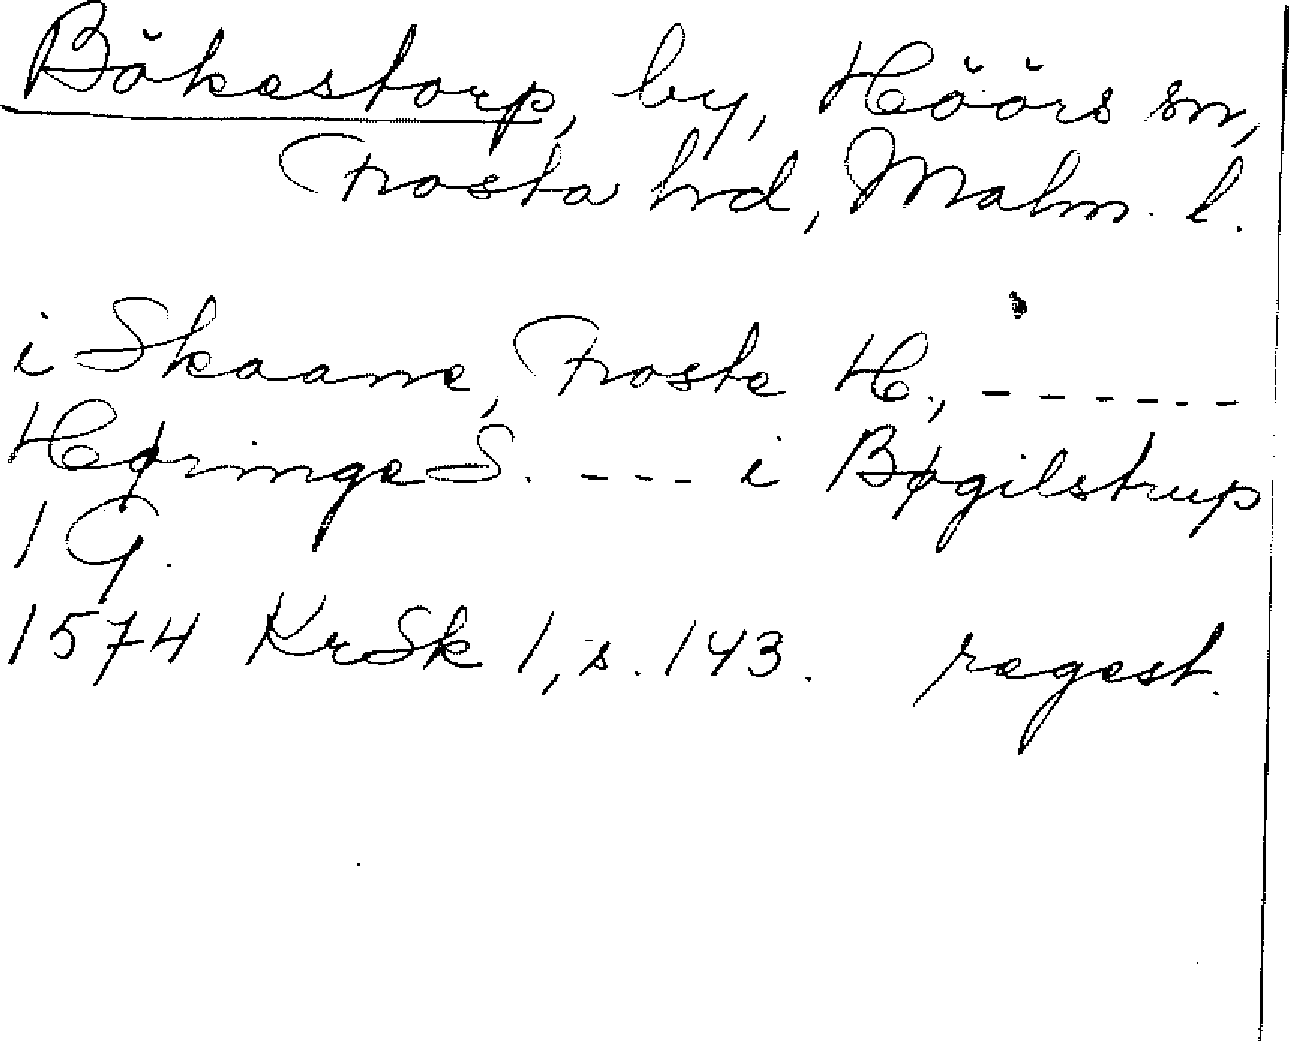 Bökestorp, by, Höörs sn,
Frosta hrd, Malm. l.
i Skaane, Froste H., ------
Høringe S. --- i Bøgilstrup
1 G.
1574 KrSk 1, s. 143. regest.